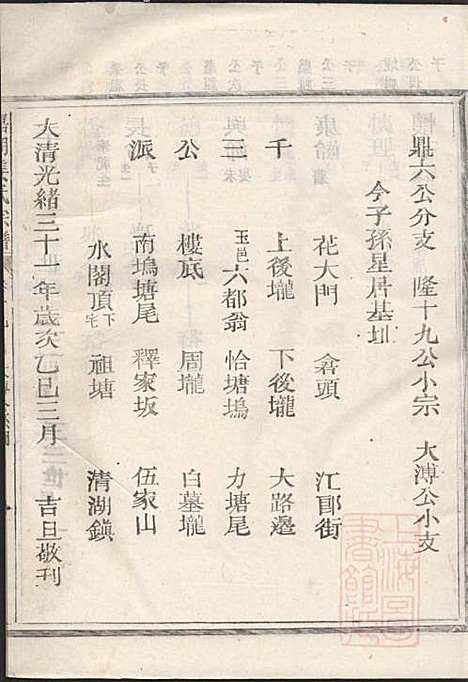 鼎六公分支　隆十九公小宗　大溥公小支
今子孫星居基址
花大門　倉頭　江郎街
千　上後壠　下後壠　大路邉
三　玉邑六都翁　恰塘塢　力塘尾
公　樓底　周壠　白墓壠
派　南塢塘尾　釋家坂　伍家山
水閣頂下宅　祖塘　清湖鎭
大清光緒三十一年歲次乙巳三月　吉旦敬刊
上海圖書館藏